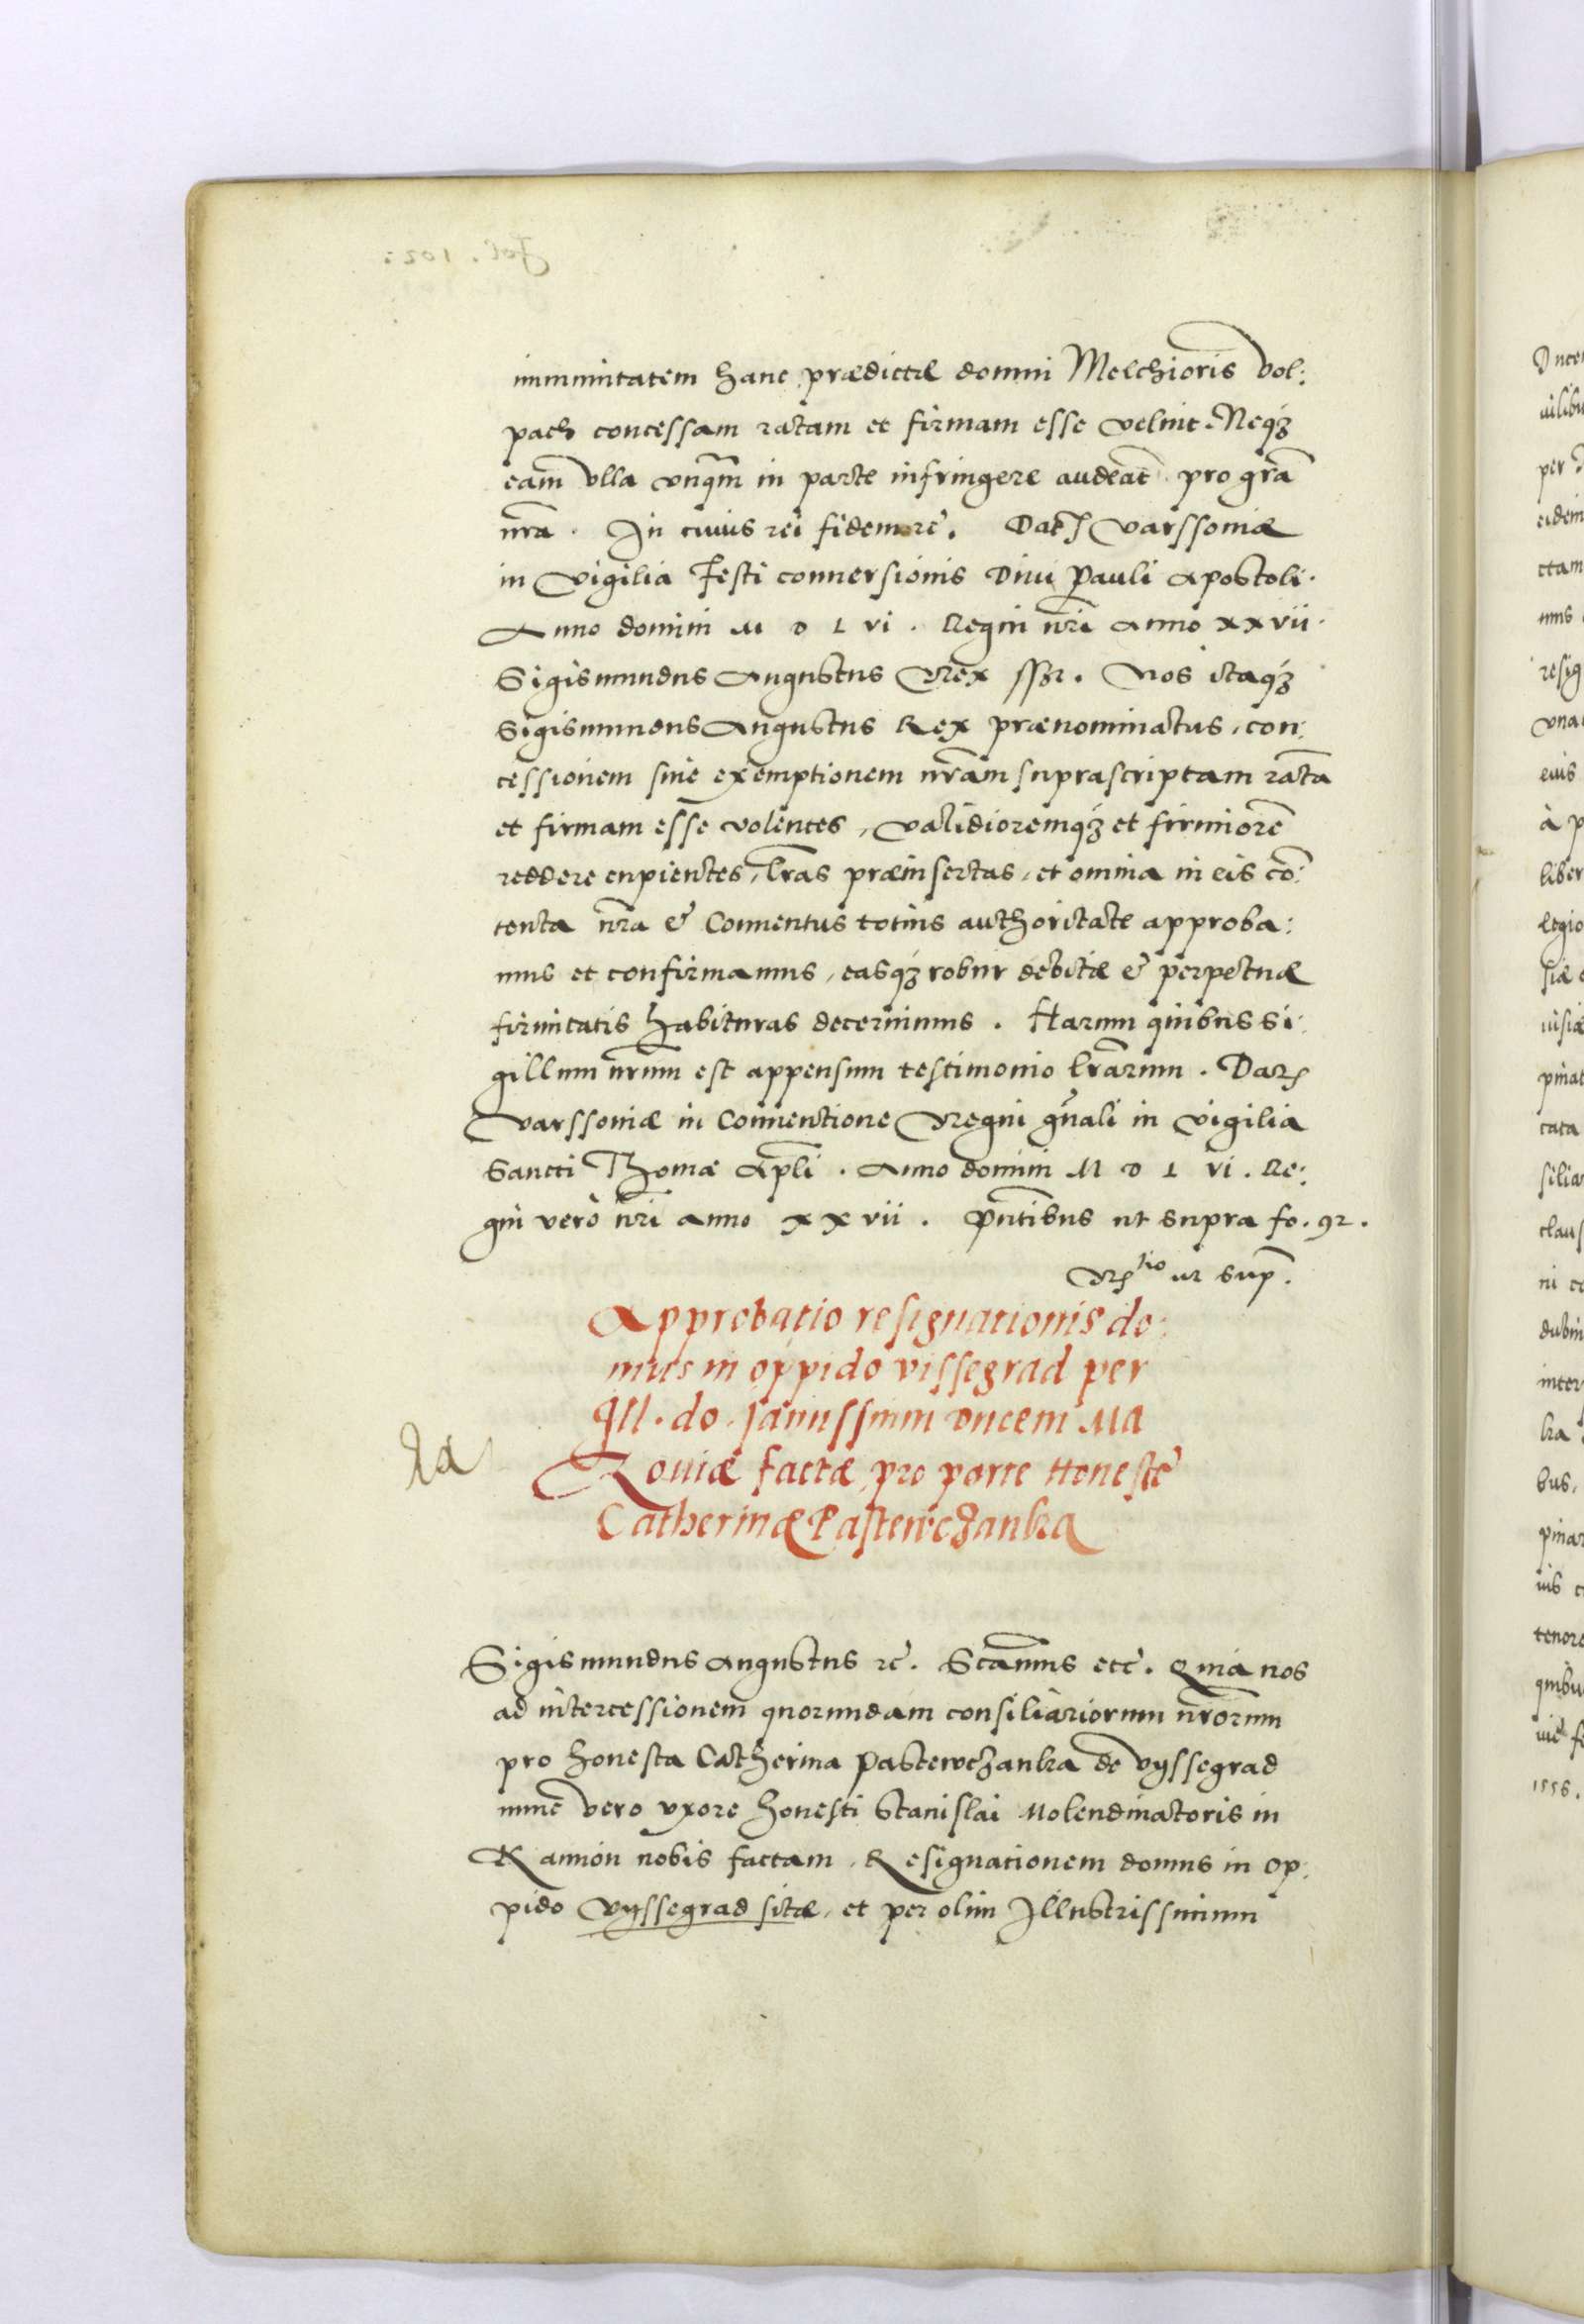 immunitatem hanc prædictæ domui Melchioris Vol:
pach concessam ratam et firmam esse velint. Neqz
eam̄ vlla vnq̄m in parte infringere audeāt pro gr̄a
nr̄a. In cuius rei fidem rē. Dat Varssoniæ
in Vigilia Festi conuersionis Diui Pauli Apostoli.
Anno domini M D L vi. Regni nr̄i Anno xxvii.
Sigismundus Augustus Rex sszr. Nos itaqz
Sigismundus Augustus Rex prænominatus, con:
cessionem siue exemptionem nr̄am suprascriptam ratā
et firmam esse volentes, validioremqz et firmiorē
reddere cupientes, lr̄as præinsertas, et omnia in eis cō:
tenta nr̄a & Conuentus totius authoritate approba:
mus et confirmamus, easqz robur debitæ & perpetuæ
firmitatis habituras decernimus. Harum quibus si:
gillum nr̄um est appensum testimonio lr̄arum. Dat
Varssoniæ in Conuentione Regni gn̄ali in vigilia
Sancti Thomæ Apl̄i. Anno domini M D L vi. Re:
gni verò nr̄i anno xxvii. Pn̄tibus ut supra fo. 92.
Rtio ut sup̄.
Approbatio resignationis do:
mus in oppido vissegrad per
Ill. do. Janussium ducem Ma
Zouiæ factæ, pro parte Honestē
Catherinæ Pastewczanka
Sigismundus Augustus rē. Scām̄us etc̄. Quia nos
ad intercessionem quorundam consiliariorum nr̄orum
pro honesta Catherina Pastewczanka de Vyssegrad
nunc vero vxore honesti Stanislai Molendinatoris in
Kamion nobis factam, Resignationem domus in Op:
pido Vyssegrad sitæ, et per olim Illustrissimum